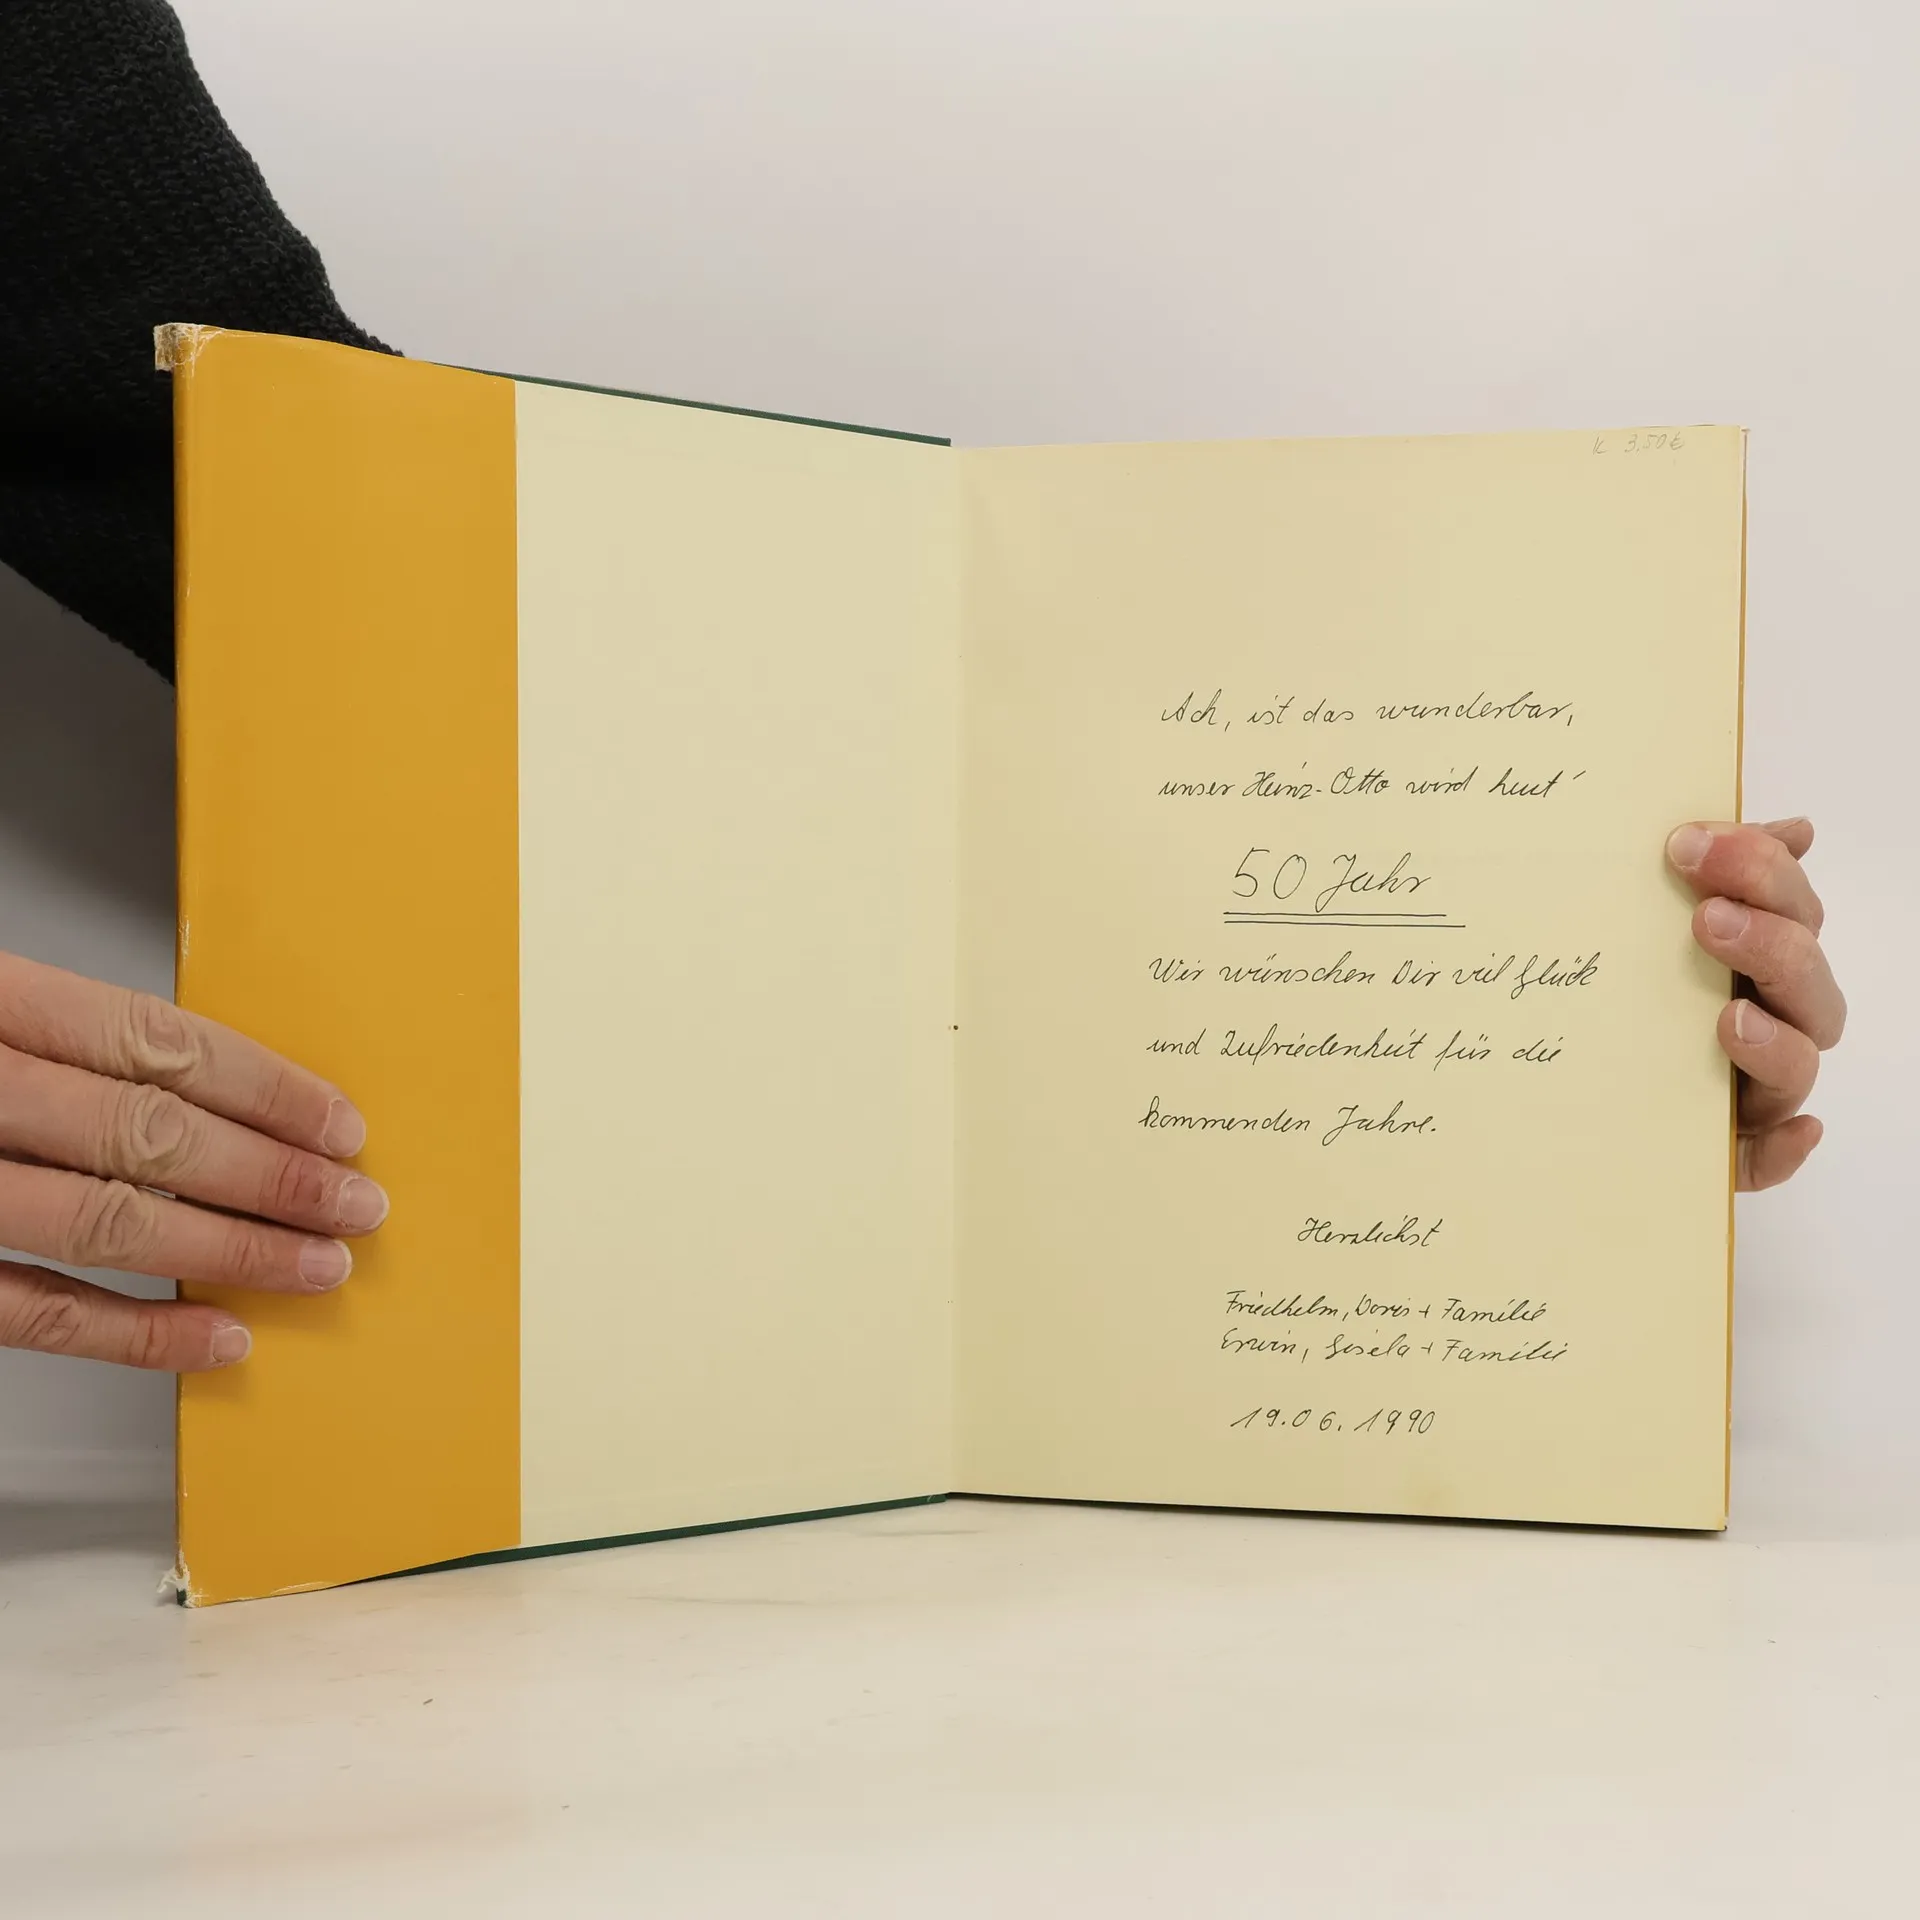 K 3.50 €
Ach, ist das wunderbar,
unser Heinz-Otto wird heut'
50 Jahr
Wir wünschen Dir viel Glück
und Zufriedenheit für die
kommenden Jahre.
Herzlichst
Friedhelm, Doris + Familie
Erwin, Gisela + Familie
19.06.1990